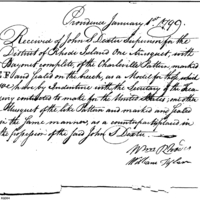 Providence January 1st 1799.
Received of John S Dexter Supervisor for the
District of Rhode Island One Musquet, with
Bayonet complete, of the Charleville Pattern, marked
and Sealed on the breech, as a Model for those which
we have by Indenture with the Secretary of the Trea-
sury contracted to make for the United States; one other
Musquet of the like Pattern and marked and Sealed
in the same manner, as a counterpart, being in
the possession of the said John S Dexter.
William Tyler